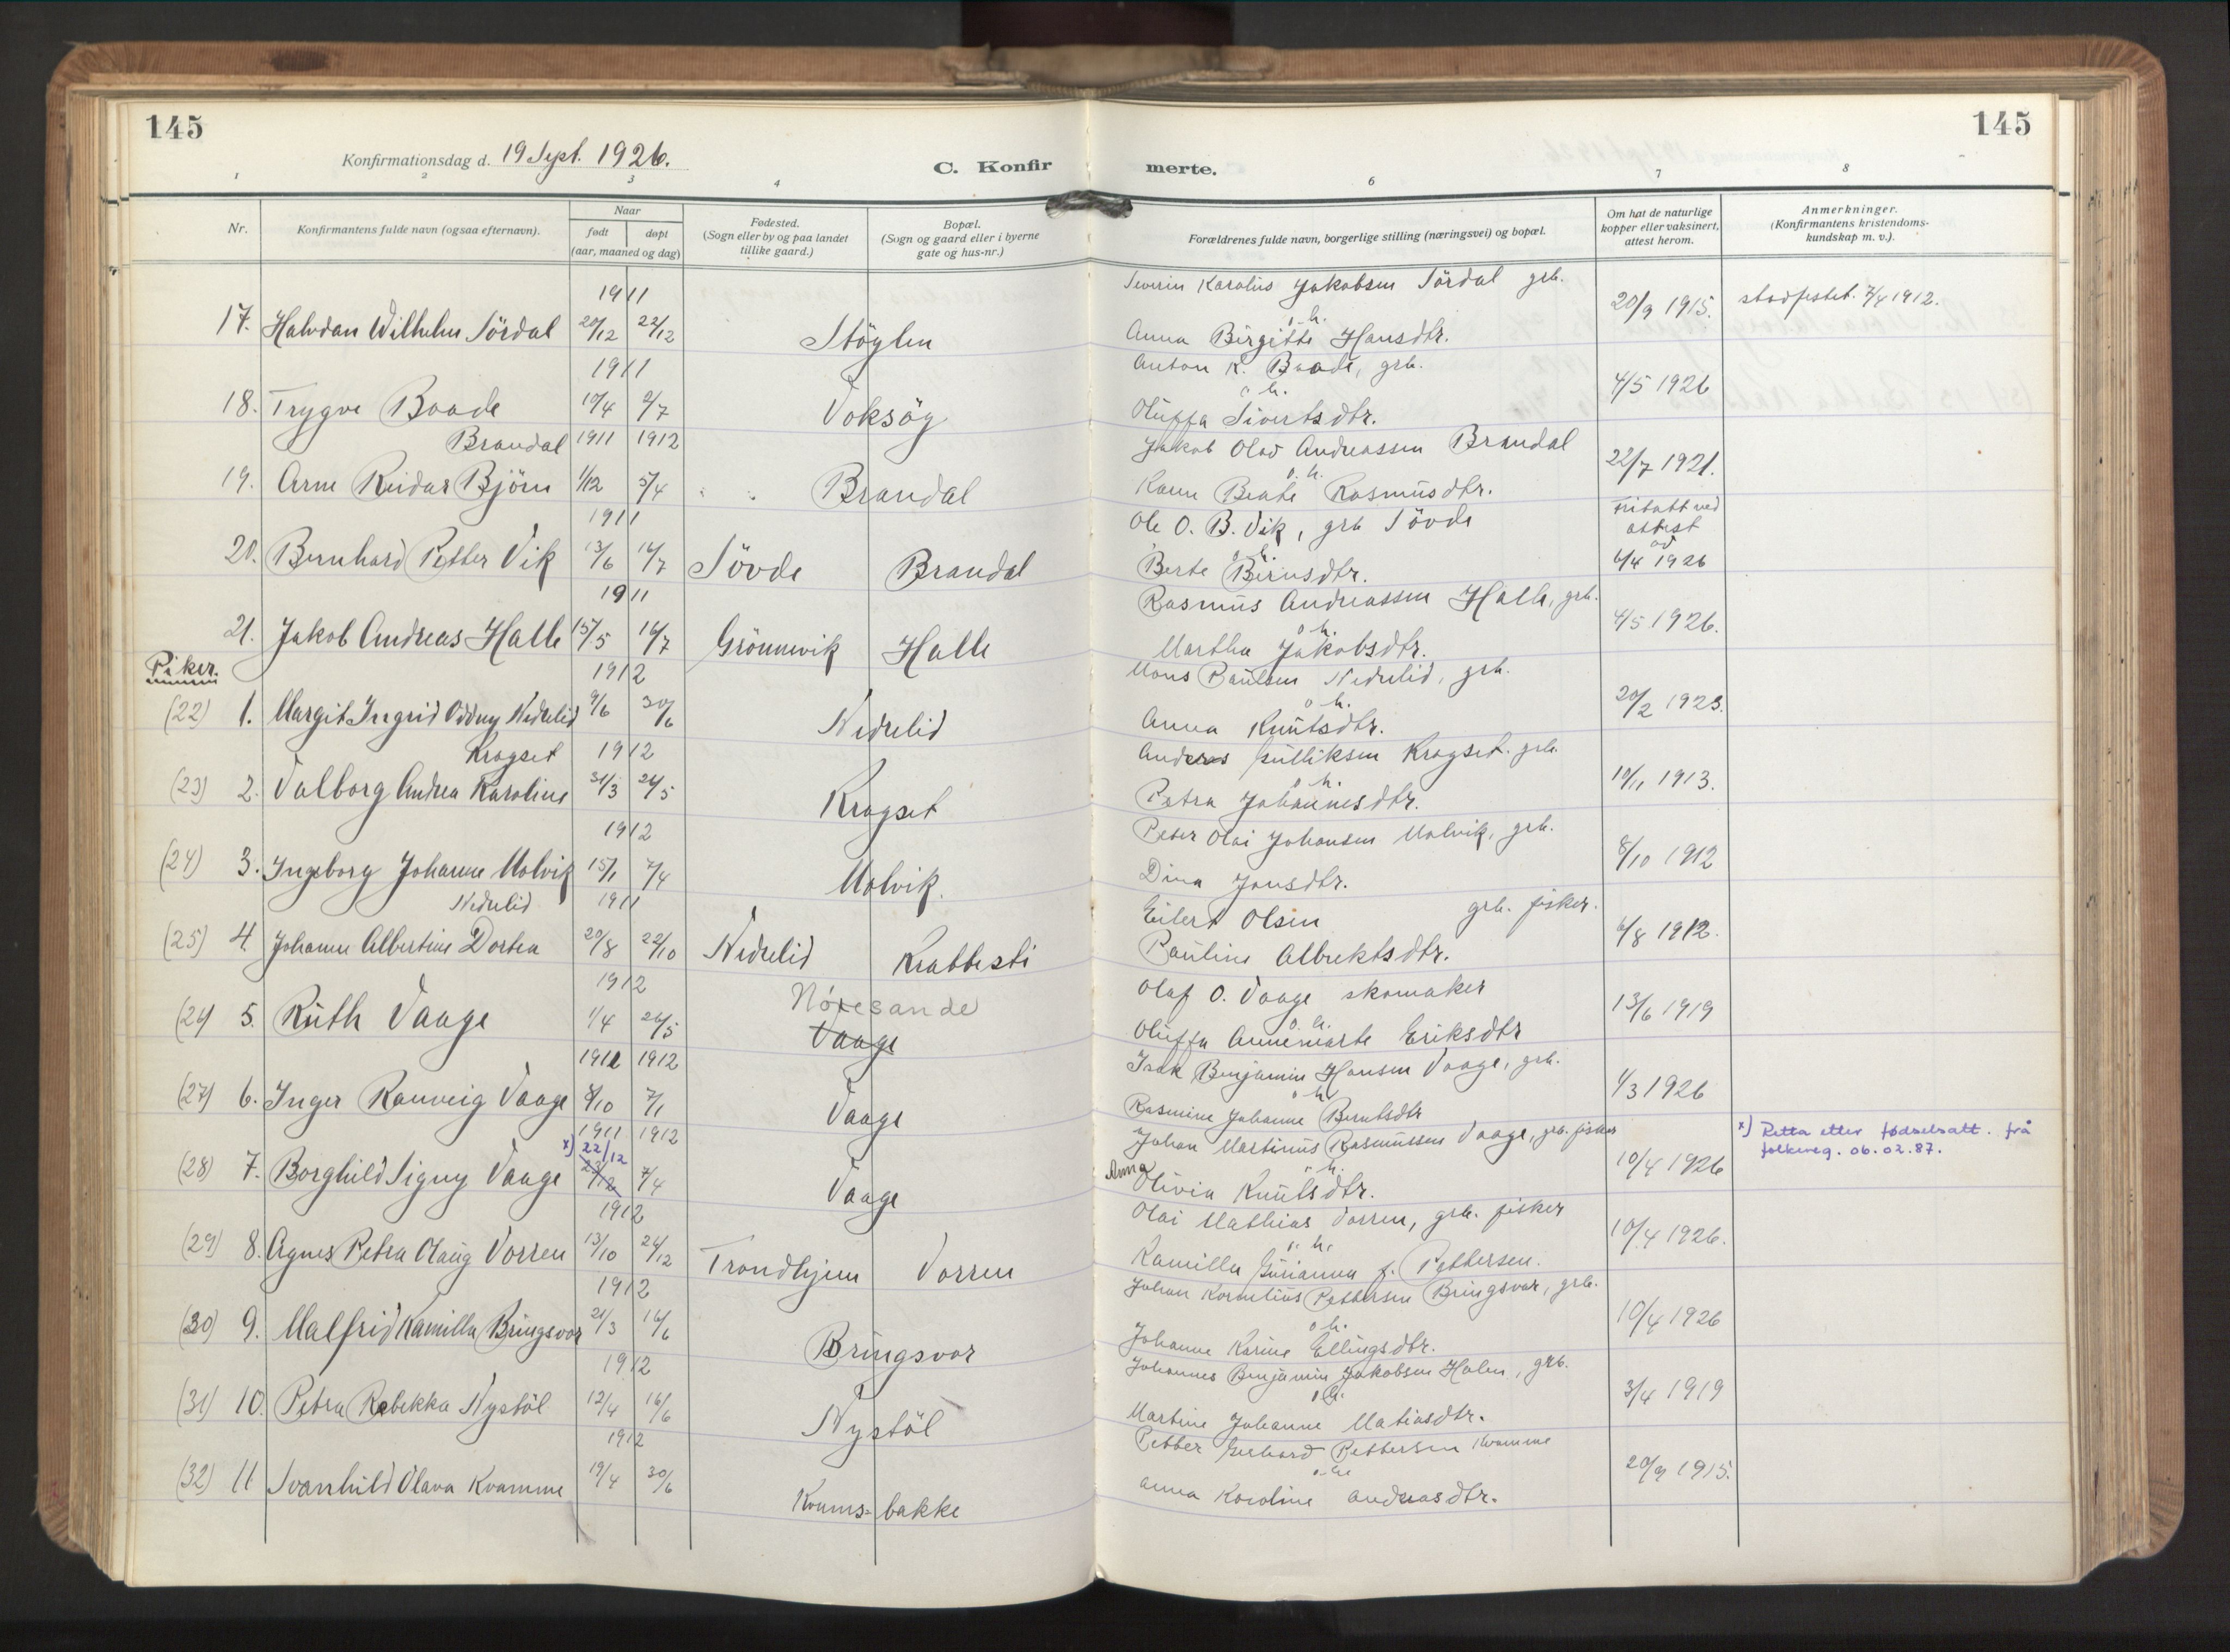 145
145
Konfirmationsdag d. 19 Sept. 1926.
C. Konfirmerte.
1 2 3 4 6 7 8
Nr.
Konfirmantens fulde navn (ogsaa efternavn).
Naar
født døpt
(aar, maaned og dag)
Fødested.
(Sogn eller by og paa landet
tillike gaard.)
Bopæl.
(Sogn og gaard eller i byerne
gate og hus-nr.)
Forældrenes fulde navn, borgerlige stilling (næringsvei) og bopæl.
Om hat de naturlige
kopper eller vaksinert,
attest herom.
Anmerkninger.
(Konfirmantens kristendoms-
kundskap m. v.).
1911 Severin Karolius Jakobsen Sördal grb.
17. Halvdan Wilhelm Sördal 20/12 22/12 Stöylen o. h. 20/9 1915. stadfestet 7/4 1912.
Anna Birgitte Hansdtr.
1911 Anton K. Baade, grb.
18. Trygve Baade 10/4 2/7 Voksöy o h. 4/5 1926
Oluffa Sivertsdtr.
Brandal 1911 1912 Jakob Olav Andreassen Brandal
19. Arne Reidar Björn 1/12 5/4 Brandal o. h. 22/7 1921.
Karen Beate Rasmusdtr.
1911 Ole O. B. Vik, grb Sövde Fritatt ved
attest
20. Bernhard Petter Vik 13/6 16/7 Sövde Brandal o h. av
6/4 1926
Berte Berusdtr.
1911 Rasmus Andreassen Halle, grb.
21. Jakob Andreas Halle 15/5 16/7 Grönnevik Halle o h. 4/5 1926.
Martha Jakobsdtr.
Piker.
1912 Mons Paulsen Nedrelid, grb.
(22) 1. Margit Ingrid Oddny Nedrelid 9/6 30/6 Nedrelid o h. 20/2 1923.
Anna Knutsdtr.
Kragset 1912 Anders Gulliksen Kragset. grb.
(23) 2. Valborg Andrea Karoline 31/3 26/5 Kragset o h. 10/11 1913.
Petra Johannesdtr.
1912 Peter Olai Johansen Molvik, grb.
(24) 3. Ingeborg Johanne Molvik 15/1 7/4 Molvik. 8/10 1912
Dina Jonsdtr.
Nedrelid 1911 Eilert Olsen grb. fisker.
(25) 4. Johanne Albertine Dortea 20/8 22/10 Nedrelid Krabbesti 6/8 1912.
Pauline Albrektsdtr.
1912 Nóresande Olaf O. Vaage skomaker
(26) 5. Ruth Vaage 1/4 26/5 Vaage o. h. 13/6 1919
Oluffa Annemarte Eriksdtr
1911 1912 Isak Benjamin Hansen Vaage, grb.
(27) 6. Inger Ranveig Vaage 8/10 7/1 Vaage o h 1/3 1926
Rasmine Johanne Berntsdtr
1911 1912 Johan Martinius Rasmussen Vaage, grb. fisker
x) 22/12
(28) 7. Borghild Signy Vaage 23/12 7/4 Vaage o h. 10/4 1926 x) Retta etter fødselsatt. frå
folkereg. 06.02.87.
Anna Olivia Knutsdtr.
1912 Olai Mathias Vorren, grb. fisker
(29) 8. Agnes Petra Olaug Vorren 13/10 26/12 Trondhjem Vorren o. h. 10/4 1926.
Kamilla Gurianna f. Pettersen.
1912 Johan Kornelius Pettersen Bringsvor, grb.
(30) 9. Malfrid Kamilla Bringsvor 21/3 16/6 Bringsvor o h. 10/4 1926
Johanne Karine Ellingsdtr.
1912 Johannes Benjamin Jakobsen Holen, grb.
(31) 10. Petra Rebekka Nystöl 12/4 16/6 Nystöl o h. 3/4 1919
Martine Johanne Matiasdtr.
1912 Petter Gerhard Pettersen Kvamme
(32) 11 Svanhild Olava Kvamme 19/4 30/6 Kvams-bakke o. h. 20/9 1915.
Anna Karoline Andreasdtr.